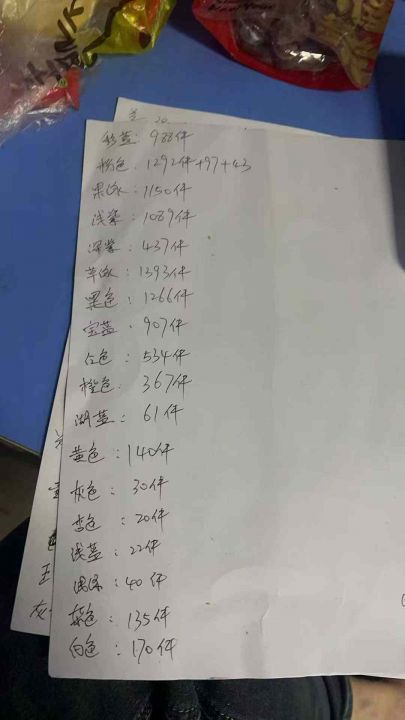 彩蓝：988件
粉色：1292件+97+43
果绿：1150件
浅紫：1089件
深紫：437件
草绿：1393件
黑色：1266件
宝蓝：907件
红色：534件
橙色：367件
湖蓝：61件
黄色：140件
灰色：30件
杏色：20件
浅蓝：22件
40件
135件
白色：170件